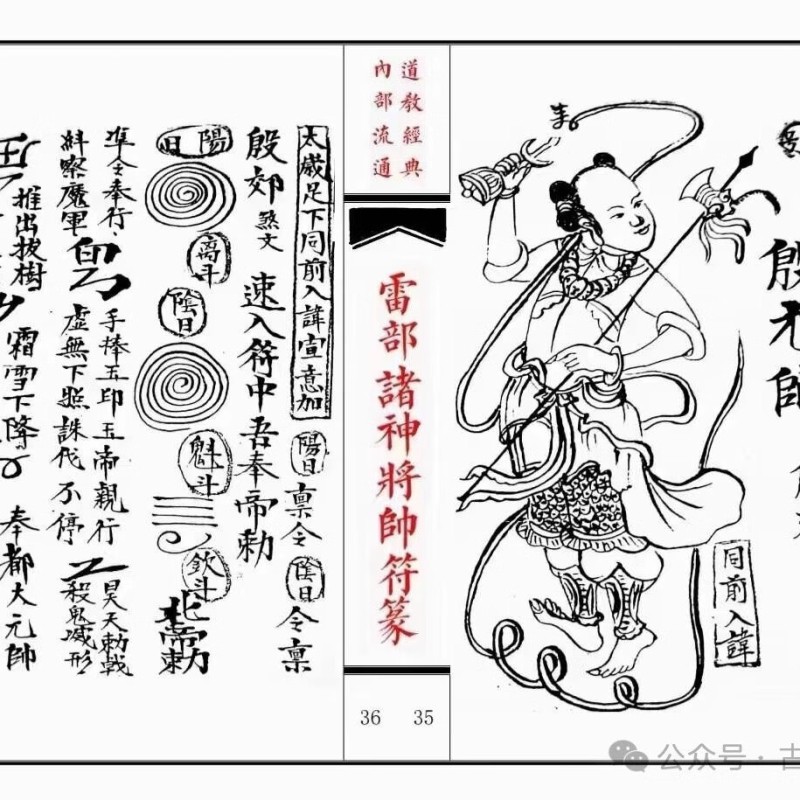 殷元帥
同前入諱
道教經典
內部流通
雷部諸神將帥符篆
36 35
太歲足下同前入諱宣意加
陽日
稟令
陰日
令稟
殷郊 煞文 速入符中吾奉帝勅
陽日
离斗
陰日
魁斗
欽斗
北帝勅
準令奉行
糾察魔軍
手捧玉印玉帝親行
虛無下照誅伐不停
昊天勅戟
殺鬼滅形
推出拔樹
霜雪下降
奉都大元帥
公众号 · 古